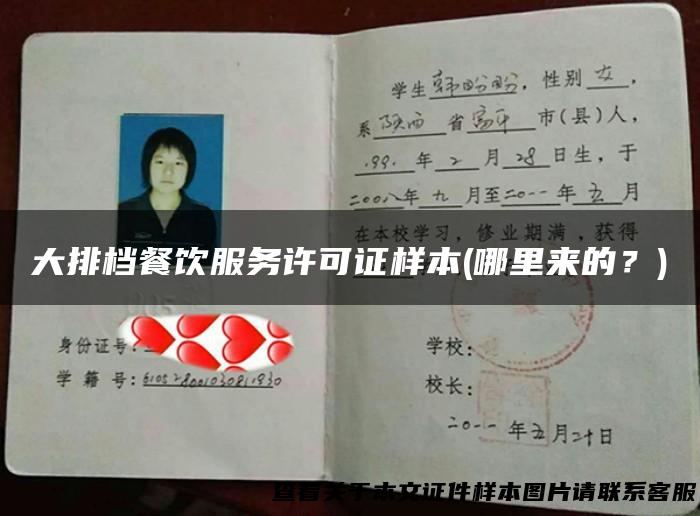 学生韩盼盼，性别女，
系陕西省富平市(县)人，
199.年2月28日生，于
二00八年九月至二0一一年五月
在本校学习，修业期满，获得
大排档餐饮服务许可证样本(哪里来的？)
身份证号：
学籍号：
学校：
校长：
二0一一年五月二十日
查看关于本文证件样本图片请联系客服